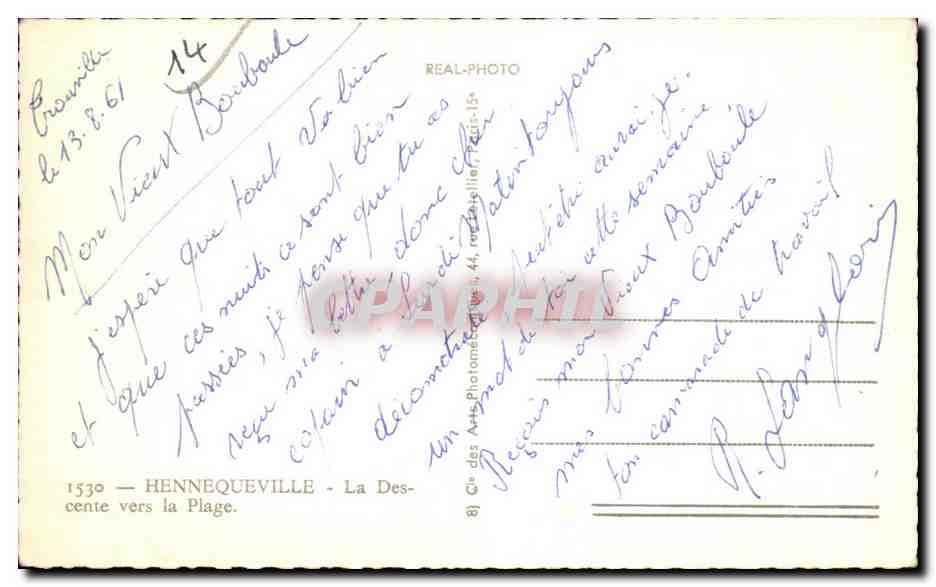 Trouville
le 13.8.61
14
Mon Vieux Bouboule
J'espère que tout va bien
et que ces nuits ce sont bien
passées, je pense que tu as
reçu ma lettre donc cher
copain à Lundi matin toujours
peut être aurai-je
un mot de toi cette semaine
Reçois mon Vieux Bouboule
mes bonnes amitiés
ton camarade de travail
R.
REAL-PHOTO
8) Cie des Arts Photomécaniques, 44, rue Letellier, Paris-15e
CPAPHIL
1530 — HENNEQUEVILLE - La Des-
cente vers la Plage.